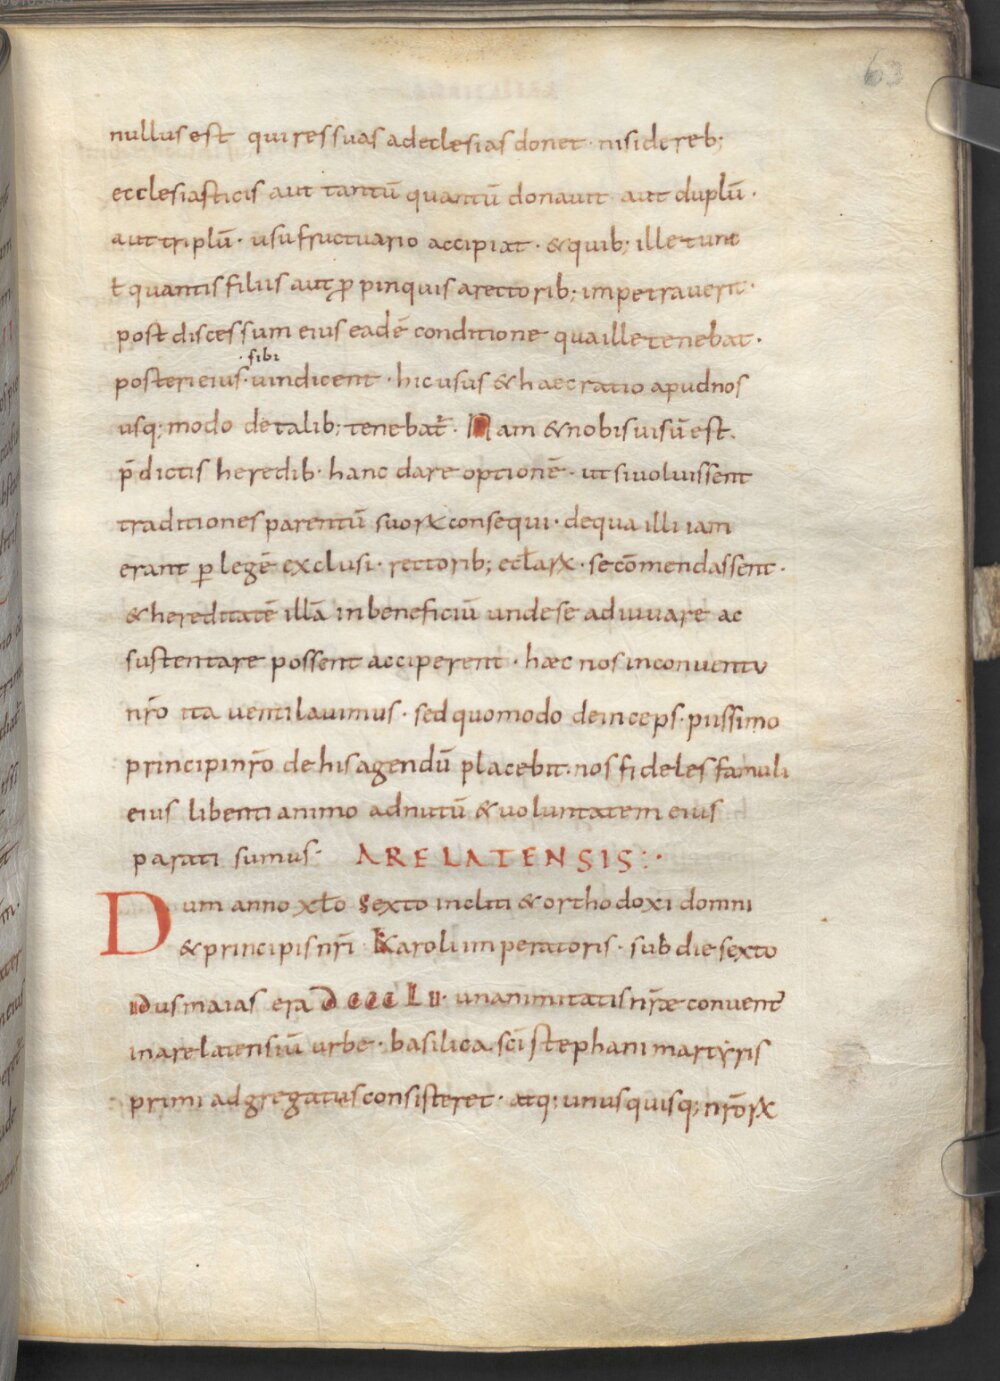 63
nullus est qui res suas ad eclesias donet · nisi de reb;
ecclesiasticis aut tantū quantū donauit aut duplū ·
aut triplū · usu fructuario accipiat · & quib; ille tunc
ł quantis filiis aut ꝓpinquis a rectorib; impetrauerit ·
post discessum eius eadē conditione qua ille tenebat ·
· sibi
posteri eius · uindicent · hic usus & haec ratio apud nos
usq; modo de talib; tenebat̄ · Nam & nobis uisū est.
p̄dictis heredib · hanc dare optionē · ut si uoluissent
traditiones parentū suoꝝ consequi · de qua illi iam
erant ꝑ legē exclusi · rectorib; ecl̄aꝝ · se cōmendassent ·
& hereditatē illā in beneficiū unde se adiuuare ac
sustentare possent acciperent · hæc nos in conuentu
nr̄o ita uentilauimus · sed quomodo deinceps · piissimo
principi nr̄o de his agendū placebit · nos fideles famuli
eius libenti animo ad nutū & uoluntatem eius
parati sumus · ARELATENSIS :·
Dum anno xl̄o sexto incliti & orthodoxi domni
& principis nr̄i Karoli imperatoris · sub die sexto
idus maias era DCCCLII · unanimitatis nr̄æ conuent᾽
in arelatensiū urbe · basilica sc̄i stephani martẏris
primi adgregatus consisteret · atq; unusquisq; nr̄oꝝ